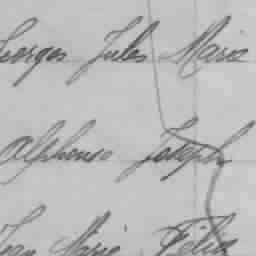 Georges Jules Marie
Alphonse Joseph
Jean Marie Félix